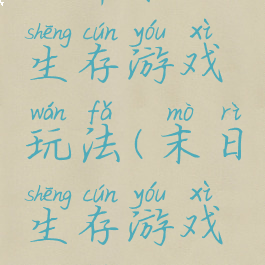 shēng cún yóu xì
生存游戏
wán fǎ mò rì
玩法(末日
shēng cún yóu xì
生存游戏